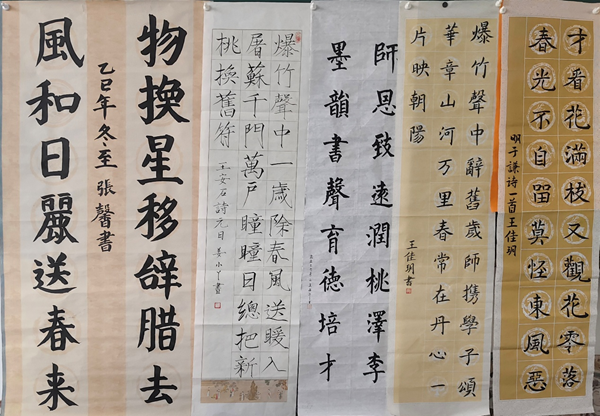 才看花滿枝又觀花零落
春光不自留莫怪東風惡
明于謙诗一首王佳玥
爆竹聲中辭舊歲師携學子頌
華章山河万里春常在丹心一
片映朝陽
王佳玥書
師恩致遠潤桃澤李
墨韻書聲育德培才
爆竹聲中一歲除春風送暖入
屠蘇千門萬戶瞳瞳日總把新
桃換舊符
王安石詩元日
物换星移辞腊去
風和日麗送春来
乙巳年冬至張馨書